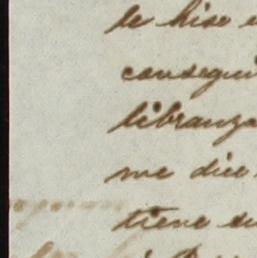 le hise
consegui
libranza
me dice
tiene su